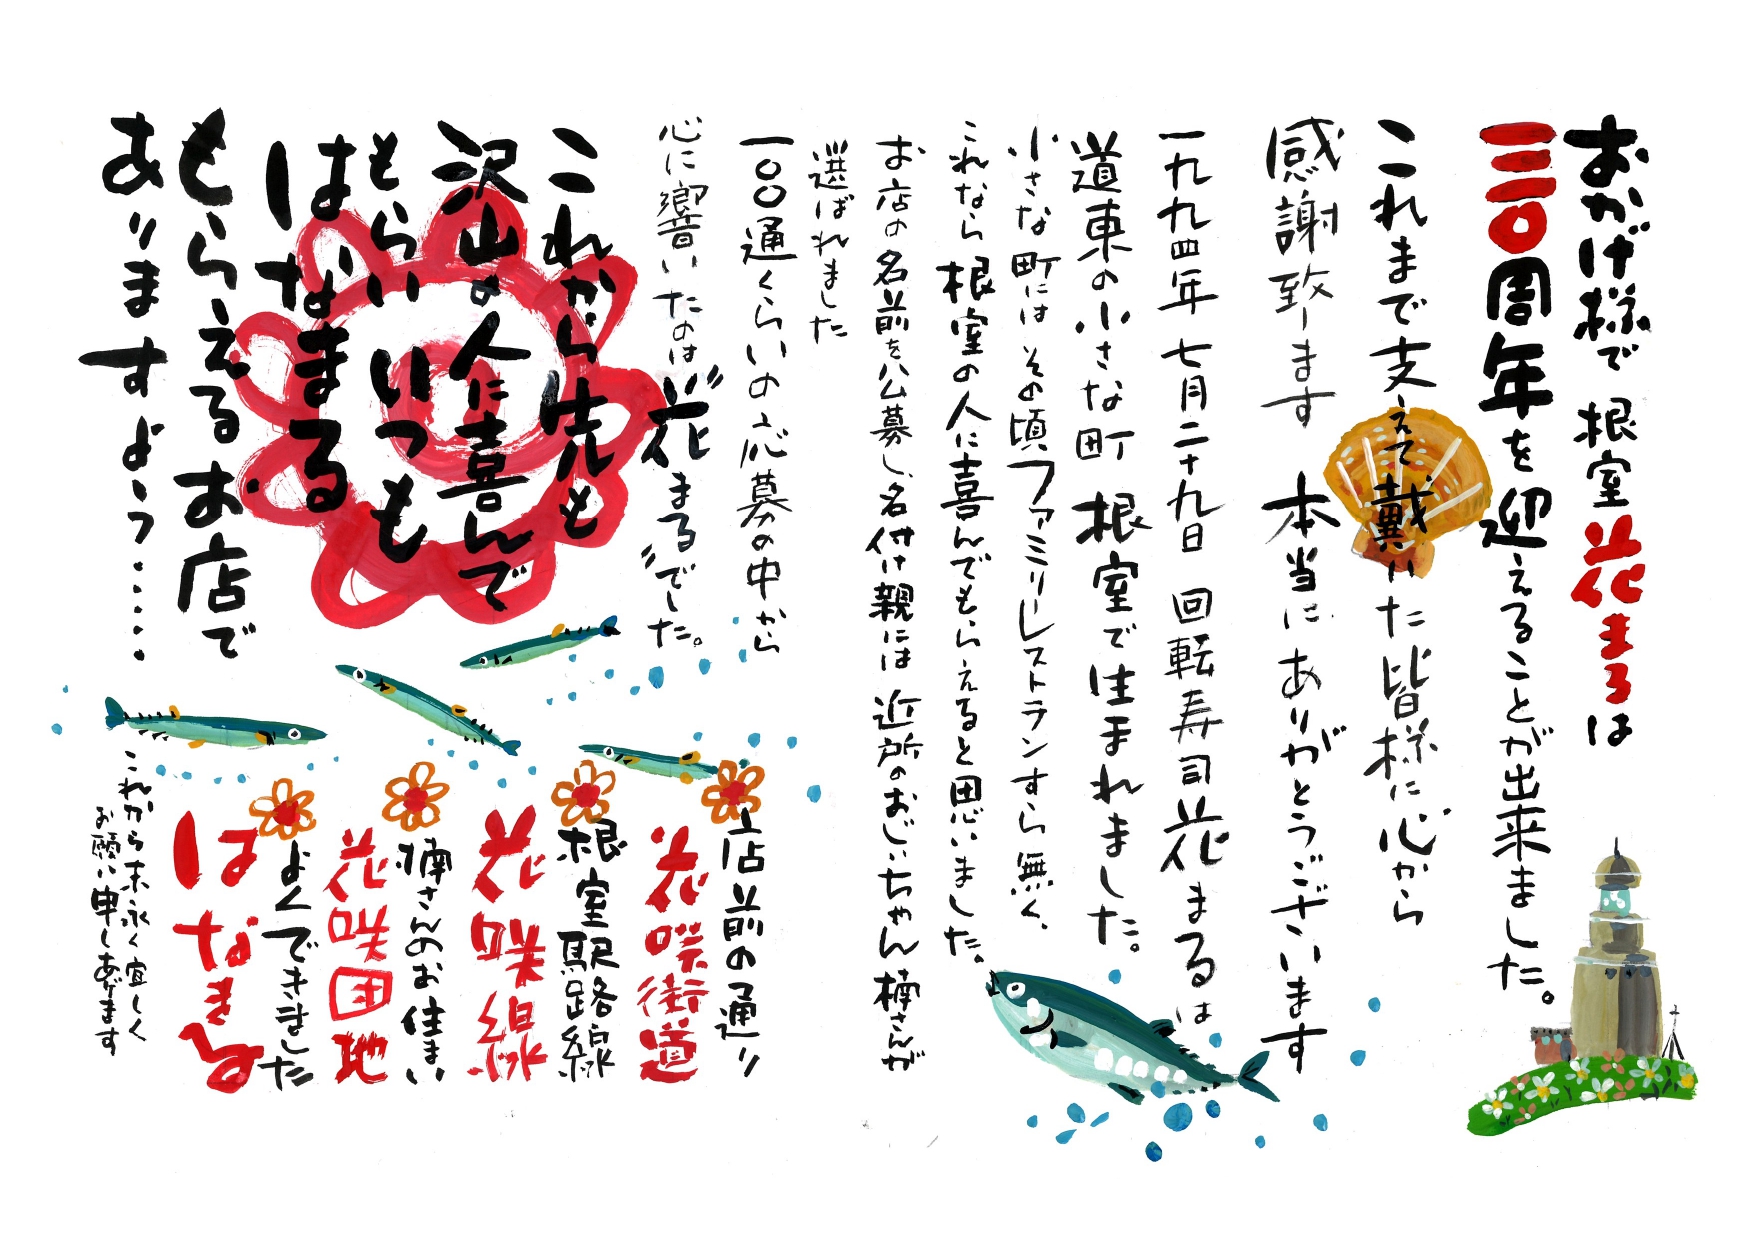 おかげ様で 根室花まるは
三〇周年を迎えることが出来ました。
これまで支えて戴いた皆様に心から
感謝致します 本当にありがとうございます
一九九四年 七月二十九日 回転寿司花まるは
道東の小さな町 根室で生まれました。
小さな町にはその頃ファミリーレストランすら無く、
これなら根室の人に喜んでもらえると思いました。
お店の名前を公募し、名付け親には近所のおじいちゃん楠さんが
選ばれました
一〇〇通くらいの応募の中から
心に響いたのは"花まる"でした。
これから先も
沢山の人に喜んで
もらい いつも
はなまる
もらえるお店で
ありますよう……
お店前の通り
花咲街道
根室駅路線
花咲線
楠さんのお住まい
花咲団地
よくできました
はなまる
これから末永く宜しく
お願い申しあげます